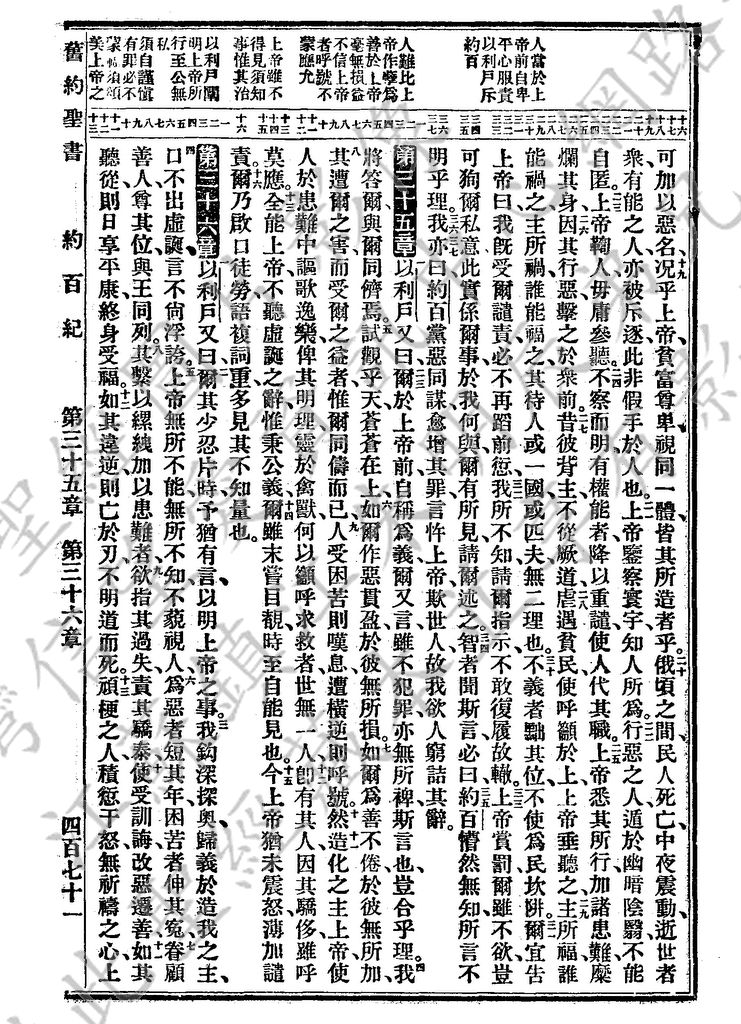 人當於上
帝前自卑
平心服責
以利戶斥
約百
人難比上
帝作孽爲
善於上帝
毫無損益
不信上帝
者呼號不
蒙應允
上帝雖不
得見須知
事惟其治
以利戶闡
明上帝所
行至公無
私
須自謹慎
有罪必不
蒙
美上帝之
可加以惡名况乎上帝貧富尊卑視同一體皆其所造者乎俄頃之間民人死亡中夜震動逝世者
衆有能之人亦被斥逐此非假手於人也上帝鑒察寰宇知人所爲行惡之人遁於幽暗陰翳不能
自匿上帝鞠人毋庸參聽不察而明有權能者降以重譴使人代其職上帝悉其所行加諸患難糜
爛其身因其行惡擊之於衆前昔彼背主不從厥道虐遇貧民使呼籲於上上帝垂聽之主所福誰
能禍之主所禍誰能福之其待人或一國或匹夫無二理也不義者黜其位不使爲民坎阱爾宜告
上帝曰我旣受爾譴責必不再蹈前愆我所不知請爾指示不敢復履故轍上帝賞罰爾雖不欲豈
可狥爾私意此實係爾事於我何與爾有所見請爾述之智者聞斯言必曰約百懵然無知所言不
明乎理我亦曰約百黨惡同謀愈增其罪言忤上帝欺世人故我欲人窮詰其辭
第三十五章以利戶又曰爾於上帝前自稱爲義爾又言雖不犯罪亦無所裨斯言也豈合乎理我
將答爾與爾同儕焉試觀乎天蒼蒼在上如爾作惡貫盈於彼無所損如爾爲善不倦於彼無所加
其遭爾之害而受爾之益者惟爾同儔而已人受困苦則嘆息遭橫逆則呼號然造化之主上帝使
人於患難中謳歌逸樂俾其明理靈於禽獸何以籲呼求救者世無一人卽有其人因其驕侈雖呼
莫應全能上帝不聽虛誕之辭惟秉公義爾雖未嘗目覩時至自能見也今上帝猶未震怒薄加譴
責爾乃啟口徒勞語複詞重多見其不知量也
第三十六章以利戶又曰爾其少忍片時予猶有言以明上帝之事我鈎深探奧歸義於造我之主
口不出虛誕言不尙浮誇上帝無所不能無所不知不藐視人爲惡者短其年困苦者伸其冤眷顧
善人尊其位與王同列其繫以縲絏加以患難者欲指其過失責其驕泰使受訓誨改惡遷善如其
聽從則日享平康終身受福如其違逆則亡於刃不明道而死頑梗之人積愆干怒無祈禱之心上
舊約聖書 約百紀 第三十五章 第三十六章 四百七十一